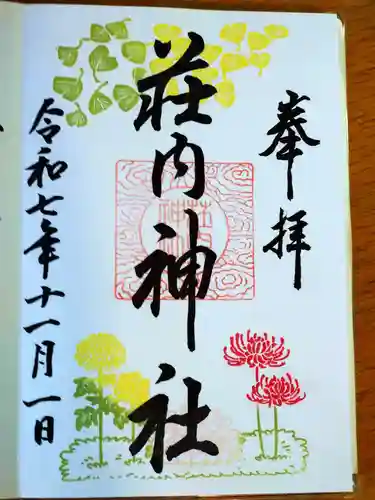 奉拝
荘内神社
令和七年十一月一日